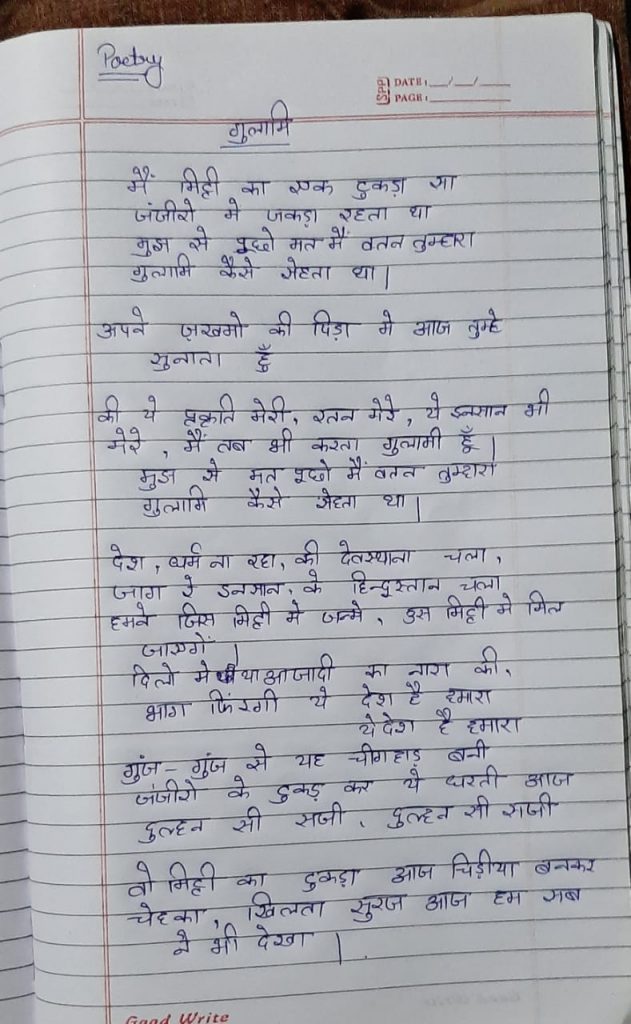 Poetry
SPP DATE: __/__/__
PAGE:
गुलामि
मैं मिट्टी का एक टुकड़ा सा
जंजीरो मे जकड़ा रहता था
मुझ से पूछो मत मैं वतन तुम्हारा
गुलामि कैसे सेहता था।
अपने ज़खमो की पिड़ा मे आज तुम्हे
सुनाता हूँ
की ये प्रकृति मेरी, रतन मेरे, ये इनसान भी
मेरे, मैं तब भी करता गुलामी हूँ।
मुझ से मत पूछो मैं वतन तुम्हारा
गुलामि कैसे सेहता था।
देश, धर्म ना रहा, की देवस्थाना चला,
जाग रे इनसान, के हिन्दुस्तान चला
हमने जिस मिट्टी मे जन्मे, उस मिट्टी मे मिल
जाएगें।
दिलो मे था आजादी का नारा की,
भाग फिंरगी ये देश है हमारा
ये देश है हमारा
गुंज-गुंज से यह चीगहाड़ बनी
जंजीरो के टुकड़ कर ये धरती आज
दुल्हन सी सजी, दुल्हन सी सजी
वो मिट्टी का टुकड़ा आज चिड़ीया बनकर
चेहका, खिलता सुरज आज हम सब
ने भी देखा।
Good Write